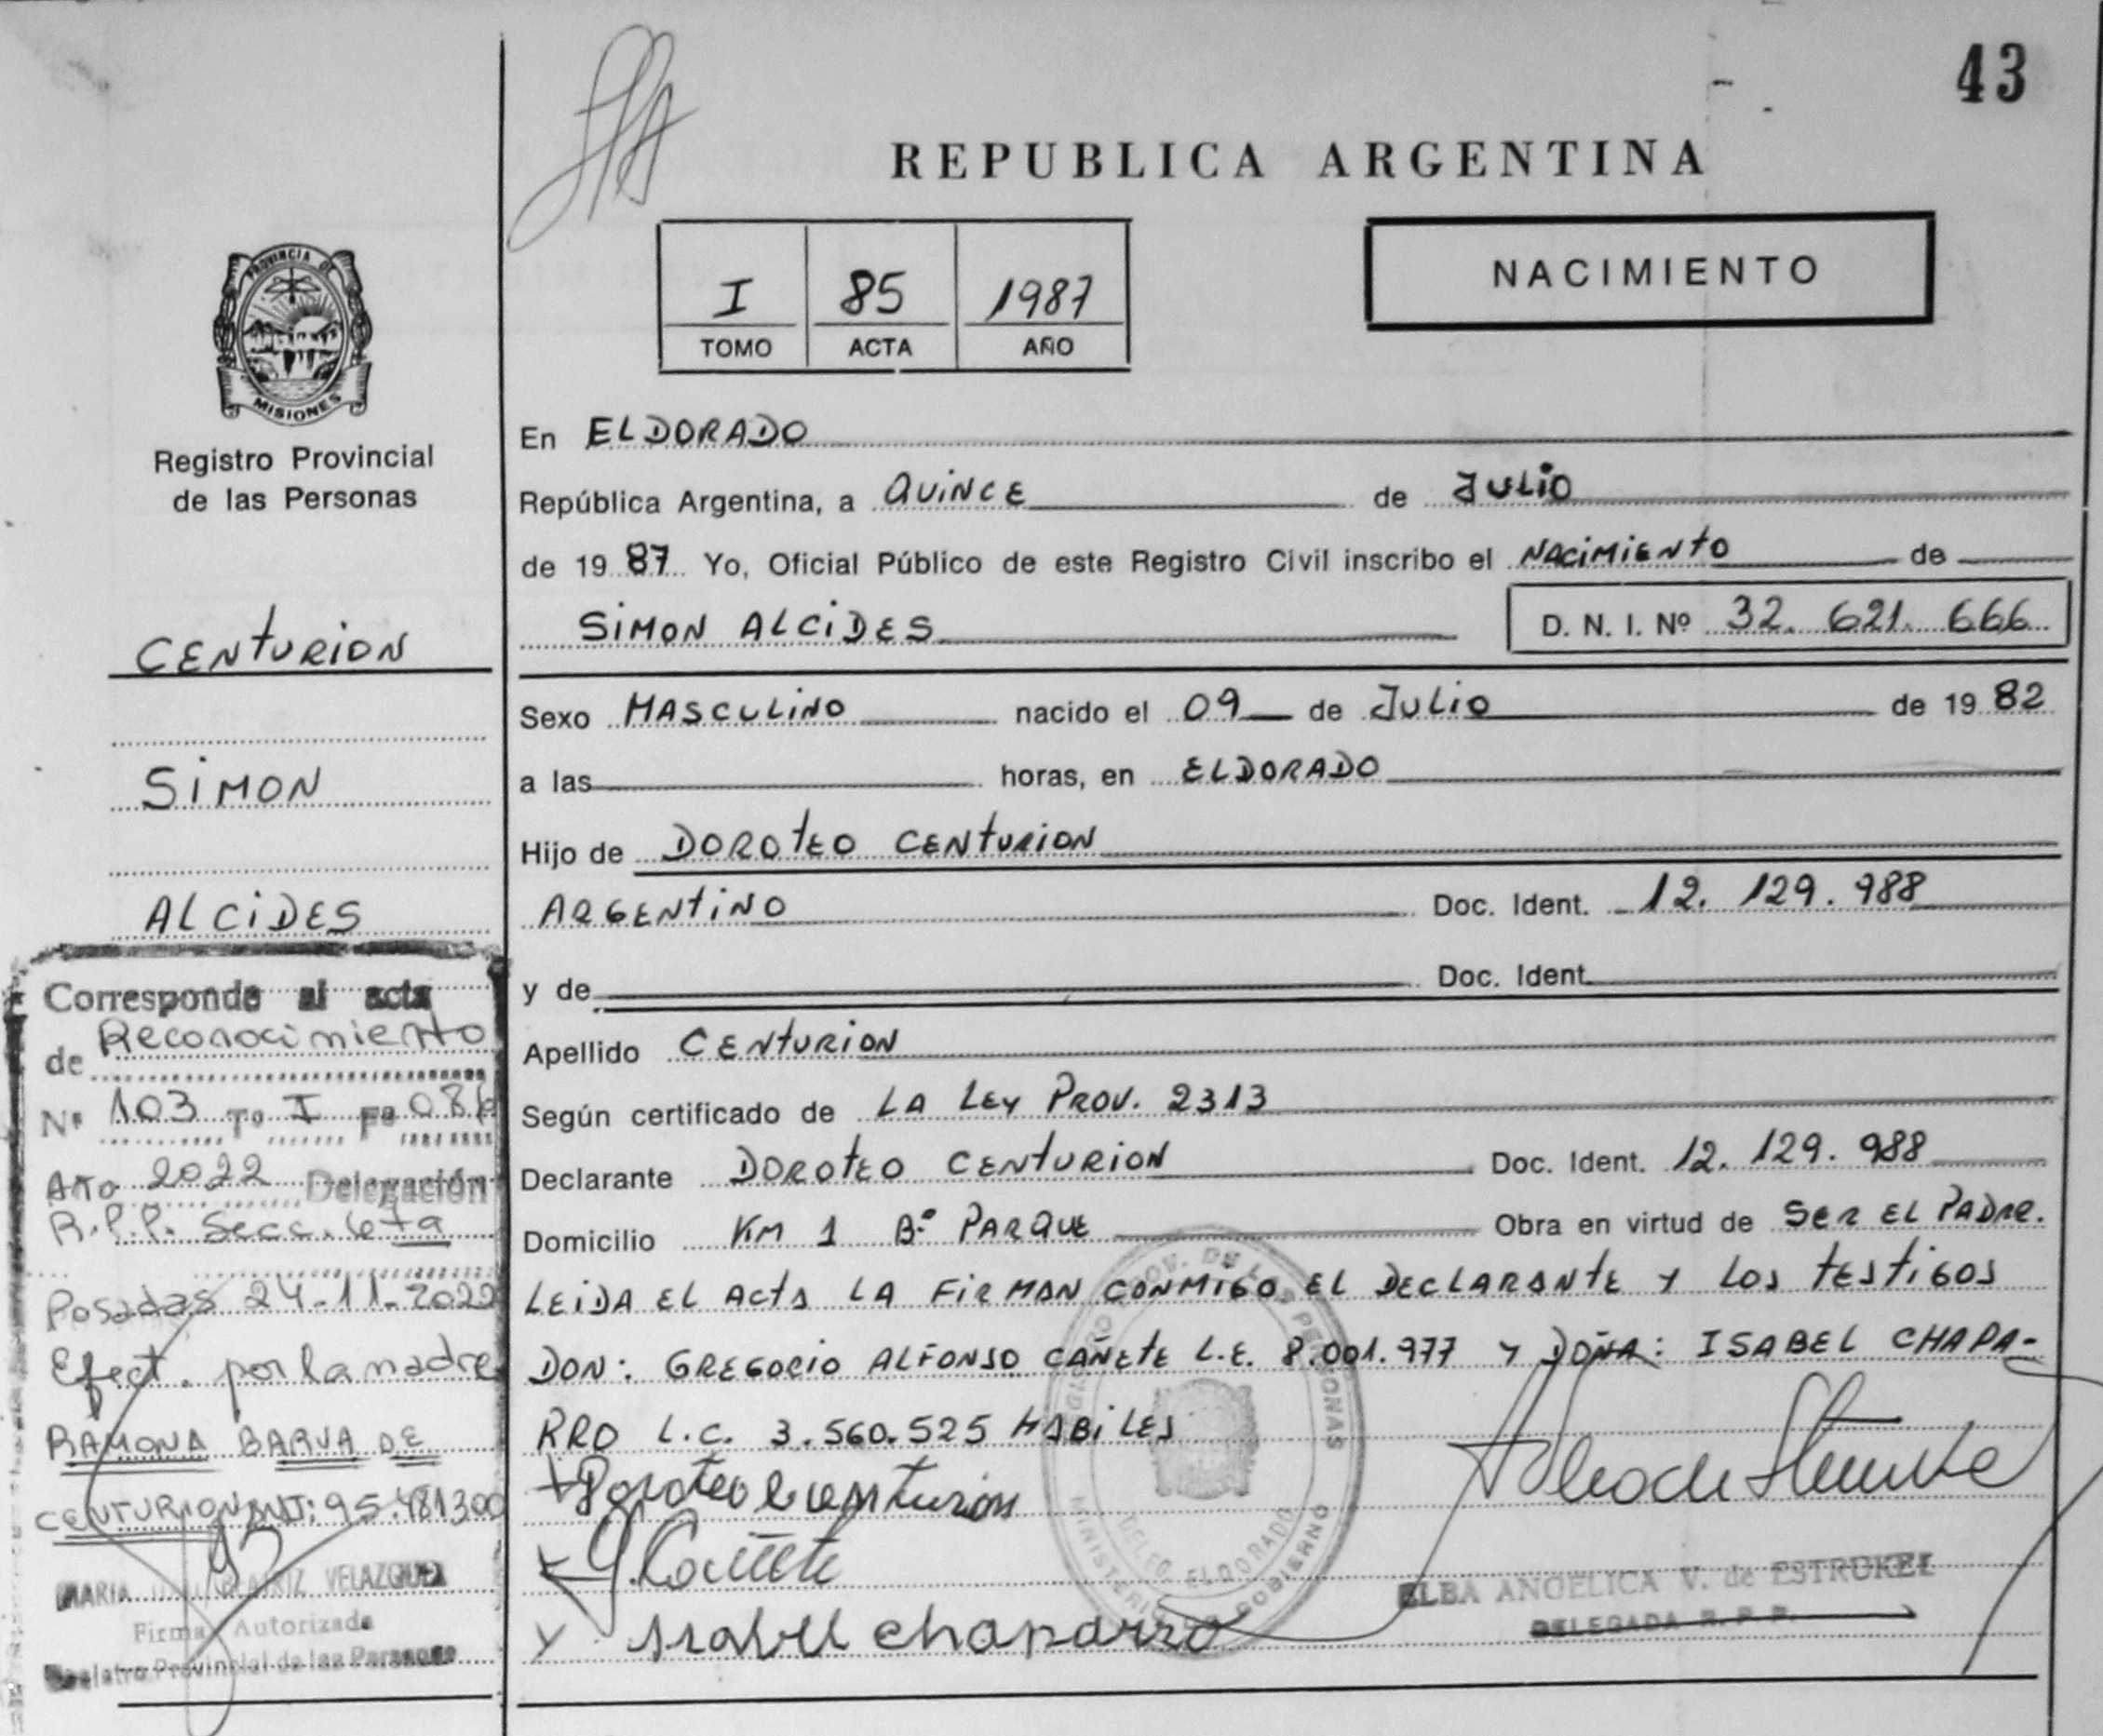 43
REPUBLICA ARGENTINA
I 85 1987
TOMO ACTA AÑO
NACIMIENTO
PROVINCIA DE
MISIONES
Registro Provincial
de las Personas
CENTURION
SIMON
ALCIDES
Corresponde al acta
de Reconocimiento
Nº 103 Tº I Fº
Año 2022 Delegación
R.P.P. Secc. 6ta
Posadas 24-11-2022
Efect. por la madre
RAMONA BARVA DE
CENTURION DNI: 95.481300
MARIA BEATRIZ VELAZQUEZ
Firma Autorizada
Registro Provincial de las Personas
En ELDORADO
República Argentina, a QUINCE de JULIO
de 19 87 Yo, Oficial Público de este Registro Civil inscribo el NACIMIENTO de
SIMON ALCIDES D. N. I. Nº 32. 621. 666
Sexo MASCULINO nacido el 09 de JULIO de 19 82
a las horas, en ELDORADO
Hijo de DOROTEO CENTURION
ARGENTINO Doc. Ident. 12. 129. 988
y de Doc. Ident.
Apellido CENTURION
Según certificado de LA LEY PROV. 2313
Declarante DOROTEO CENTURION Doc. Ident. 12. 129. 988
Domicilio KM 1 Bº PARQUE Obra en virtud de SER EL PADRE.
LEIDA EL ACTA LA FIRMAN CONMIGO EL DECLARANTE Y LOS TESTIGOS
DON: GREGORIO ALFONSO CAÑETE L.E. 8.001.977 Y DOÑA: ISABEL CHAPA-
RRO L.C. 3.560.525 HABILES
Doroteo Centurion
G. Cañete
Isabel chaparro
REGISTRO PROV. DE LAS PERSONAS
DELEG. ELDORADO
MINISTERIO DE GOBIERNO
ELBA ANGELICA V. de ESTRUKEL
DELEGADA R. P. P.